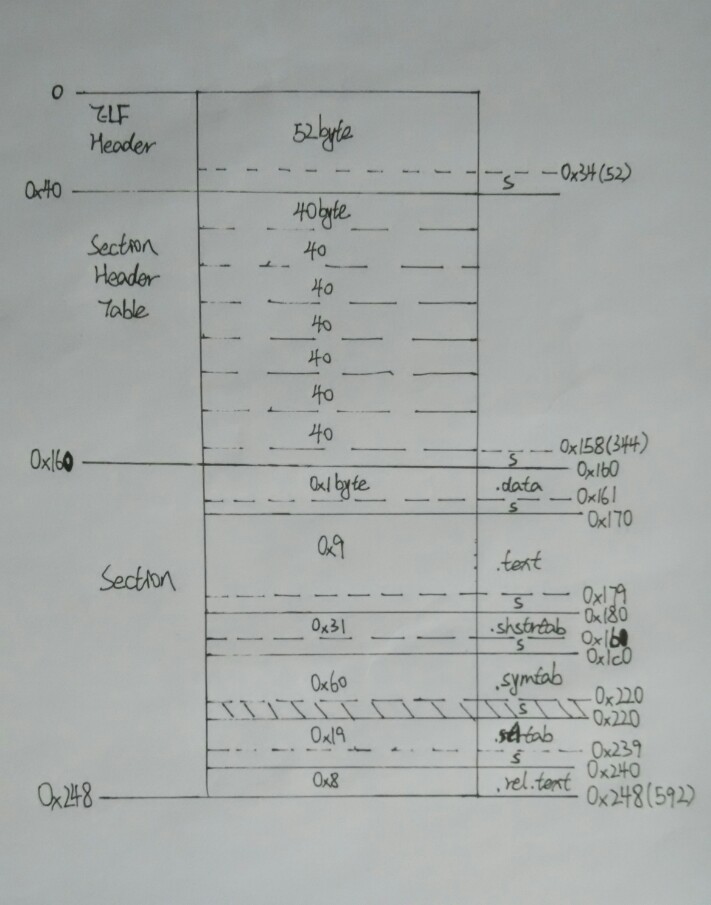 0
ELF
Header
52byte
0x34(52)
S
0x40
40byte
Section
Header
Table
40
40
40
40
40
40
0x158(344)
S
0x160
0x160
0x1byte
.data
0x161
S
0x170
0x9
.text
Section
0x179
S
0x180
0x31
.shstrtab
S
0x1c0
0x60
.symtab
0x220
S
0x220
0x19
.strtab
0x239
S
0x240
0x8
.rel.text
0x248
0x248(592)